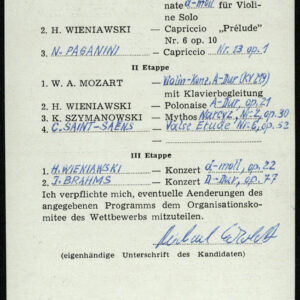 nate d-moll für Violi-
ne Solo
2. H. WIENIAWSKI — Capriccio „Prélude"
Nr. 6 op. 10
3. N. PAGANINI — Capriccio Nr. 13 op. 1
II Etappe
1. W. A. MOZART — Violin-Konz. A-Dur (KV 219)
mit Klavierbegleitung
2. H. WIENIAWSKI — Polonaise A-Dur, op. 21
3. K. SZYMANOWSKI — Mythos Narcyz, Nr. 2, op. 30
4. C. SAINT-SAËNS — Valse Etüde Nr. 6, op. 52
III Etappe
1. H. WIENIAWSKI — Konzert d-moll, op. 22
2. J. BRAHMS — Konzert D-Dur, op. 77
Ich verpflichte mich, eventuelle Aenderungen des
angegebenen Programms dem Organisationsko-
mitee des Wettbewerbs mitzuteilen.
(eigenhändige Unterschrift des Kandidaten)